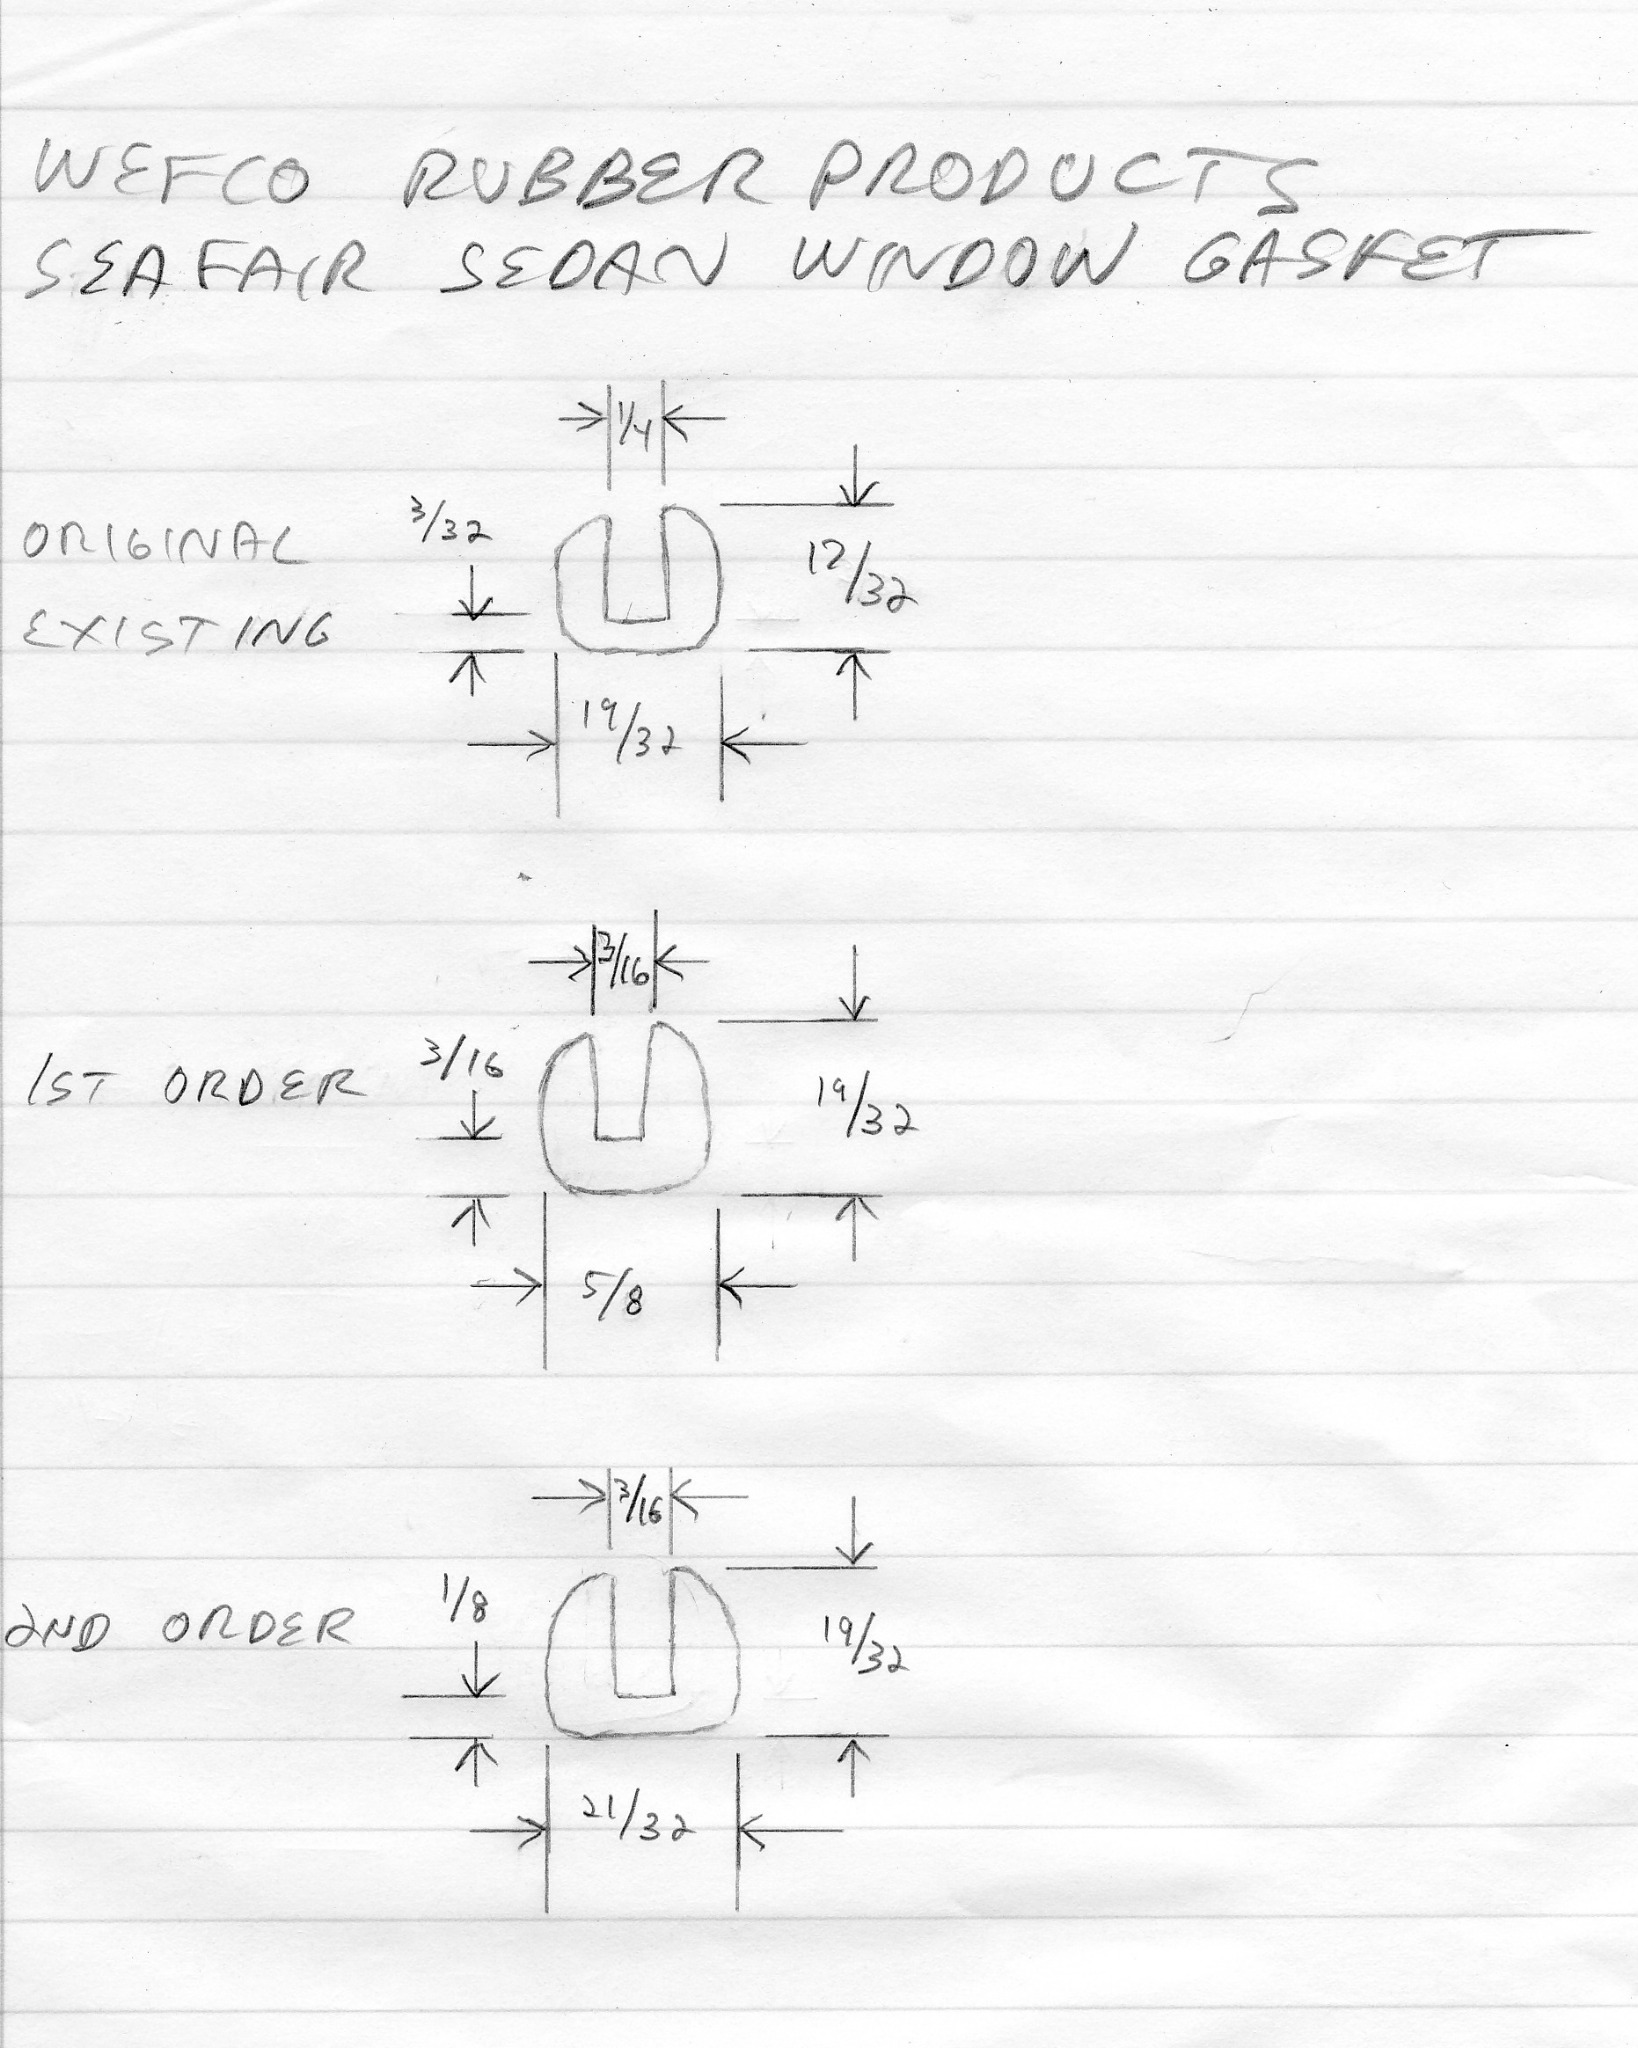 WEFCO RUBBER PRODUCTS
SEAFAIR SEDAN WINDOW GASKET
1/4
ORIGINAL
EXISTING
3/32
/32
19/32
3/16
1ST ORDER
3/16
19/32
5/8
3/16
2ND ORDER
1/8
19/32
21/32